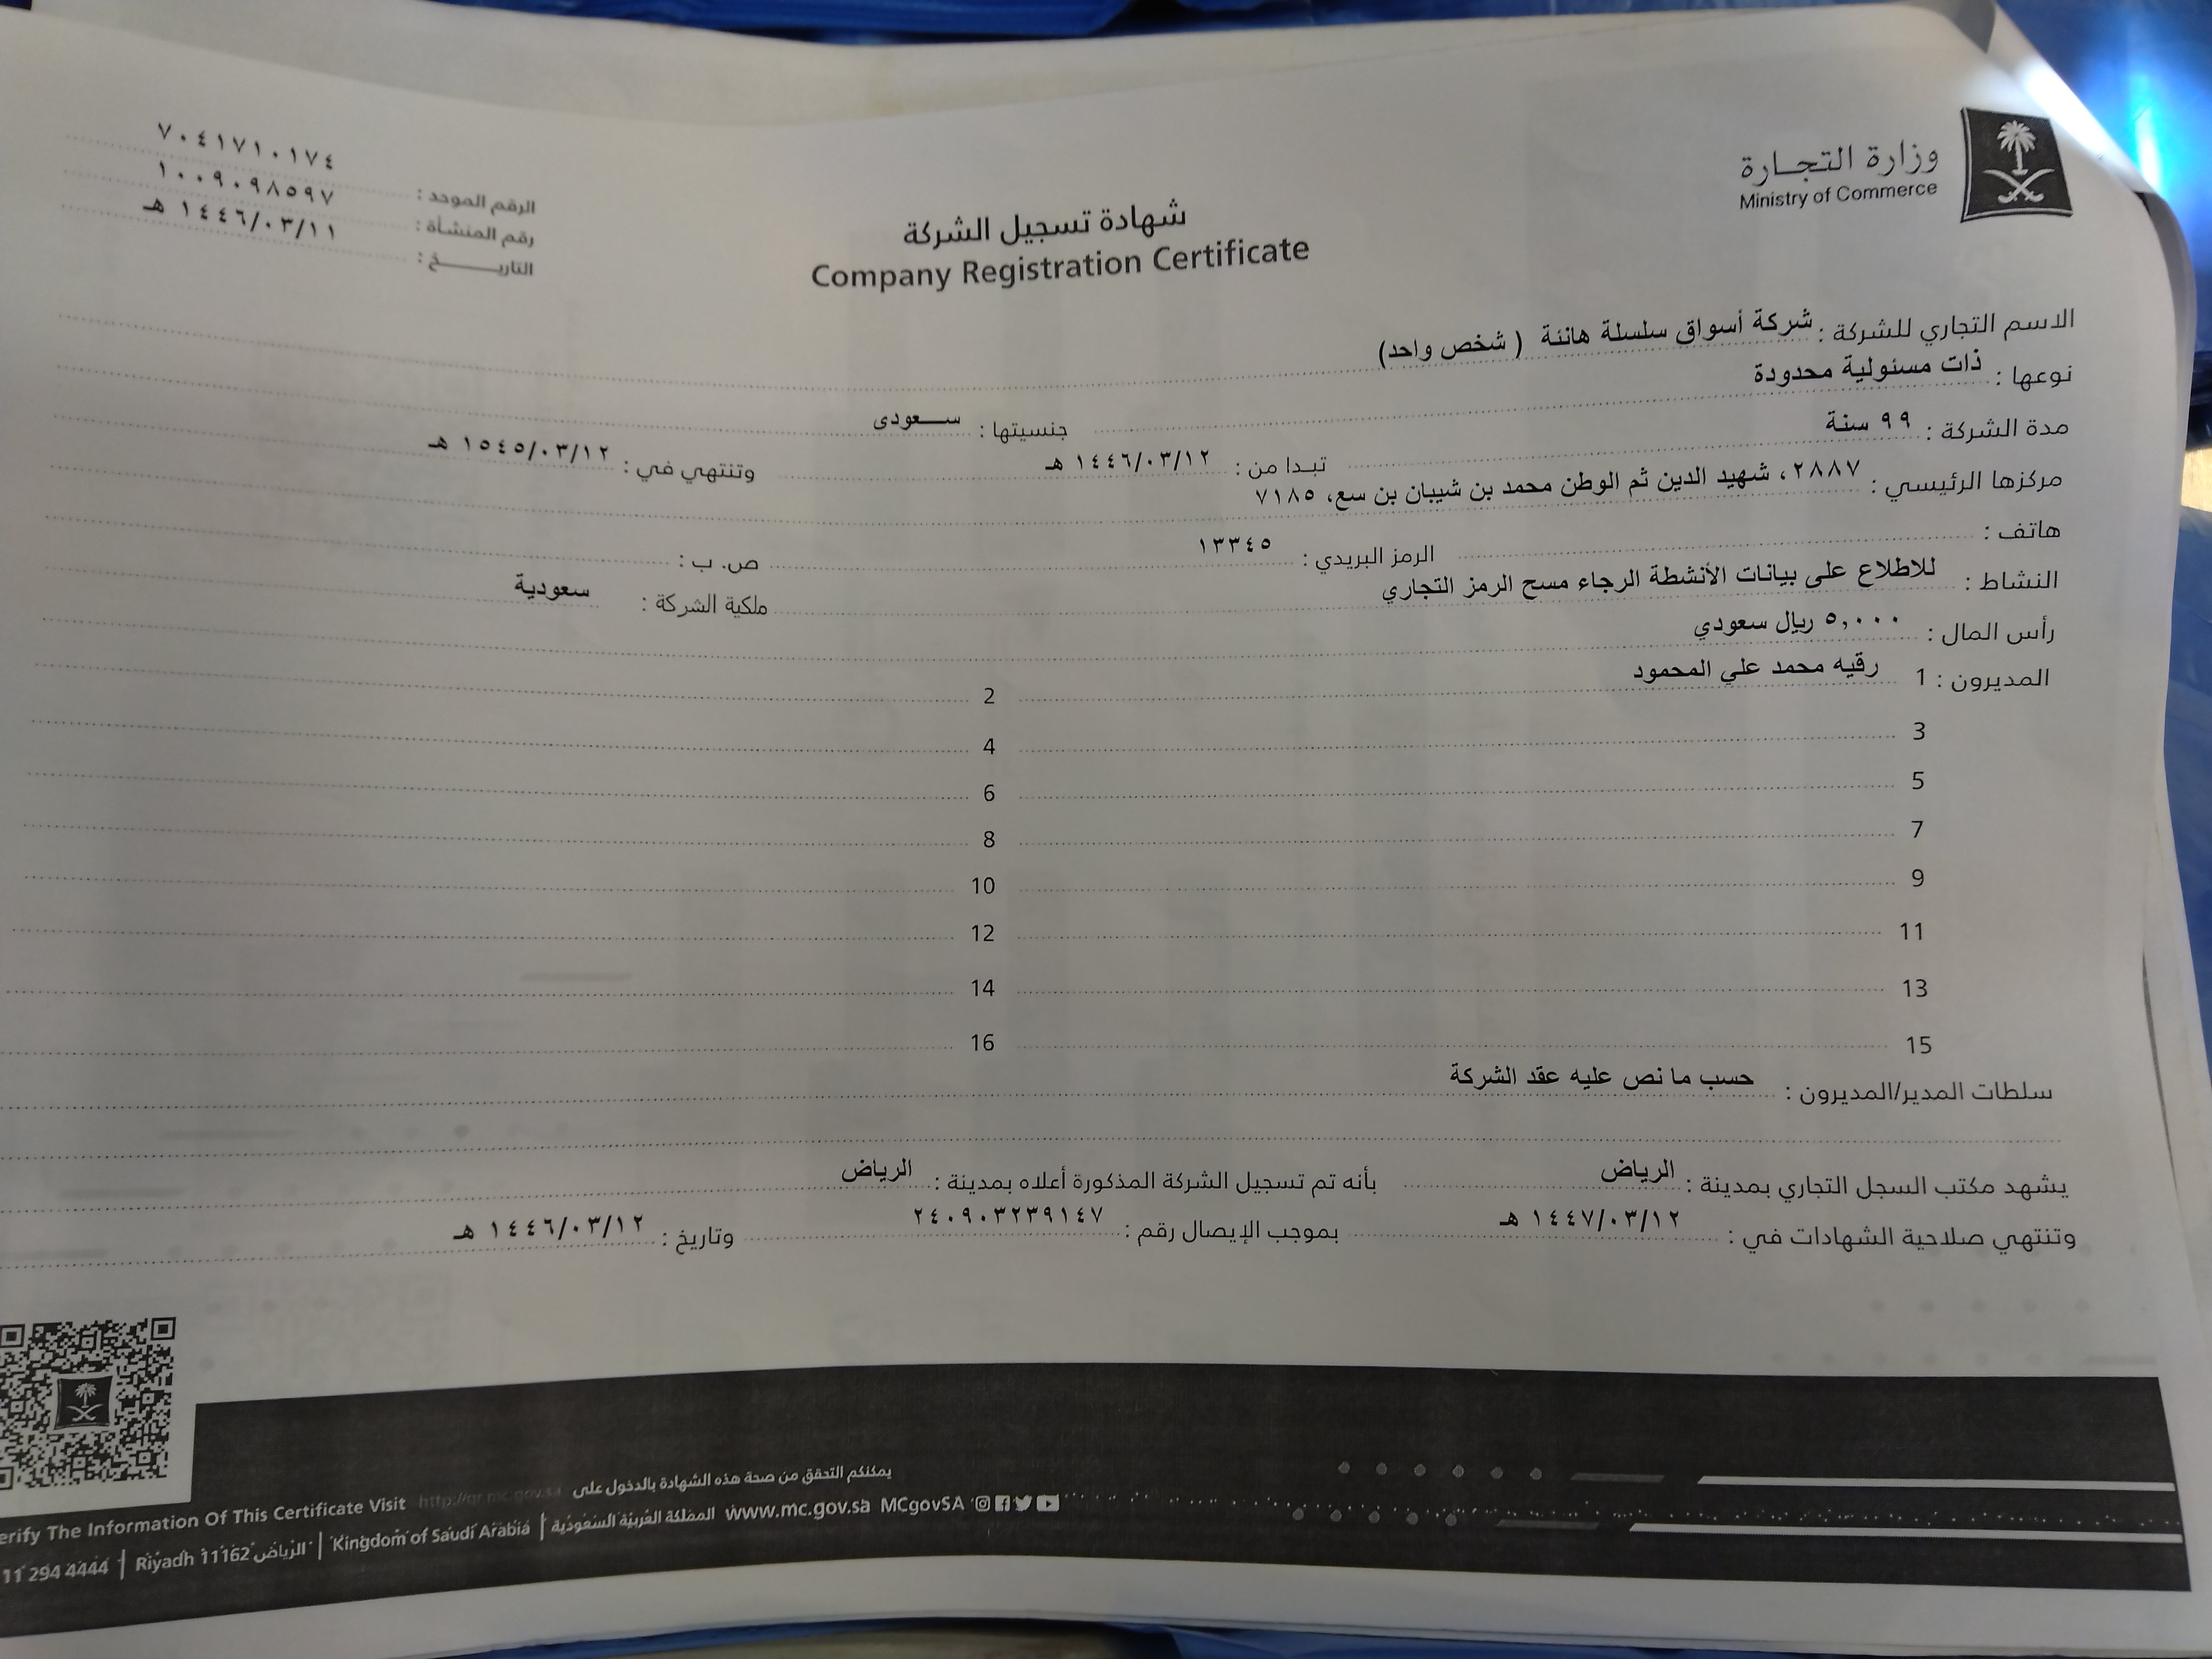 وزارة التجارة
Ministry of Commerce
شهادة تسجيل الشركة
Company Registration Certificate
الرقم الموحد : ٧٠٤١٧١٠١٧٤
رقم المنشأة : ١٠٠٩٠٩٨٥٩٧
التاريـــــــخ : ١٤٤٦/٠٣/١١ هـ
الاسم التجاري للشركة : شركة أسواق سلسلة هانئة ( شخص واحد)
نوعها : ذات مسئولية محدودة جنسيتها : ســـعودى
مدة الشركة : ٩٩ سنة تبـدا من : ١٤٤٦/٠٣/١٢ هـ وتنتهي في : ١٥٤٥/٠٣/١٢ هـ
مركزها الرئيسي : ٢٨٨٧، شهيد الدين ثم الوطن محمد بن شيبان بن سع، ٧١٨٥
هاتف : الرمز البريدي : ١٣٣٤٥ ص. ب :
النشاط : للاطلاع على بيانات الأنشطة الرجاء مسح الرمز التجاري ملكية الشركة : سعودية
رأس المال : ٥,٠٠٠ ريال سعودي
المديرون : 1 رقيه محمد علي المحمود 2
3 4
5 6
7 8
9 10
11 12
13 14
15 16
سلطات المدير/المديرون : حسب ما نص عليه عقد الشركة
يشهد مكتب السجل التجاري بمدينة : الرياض بأنه تم تسجيل الشركة المذكورة أعلاه بمدينة : الرياض
وتنتهي صلاحية الشهادات في : ١٤٤٧/٠٣/١٢ هـ بموجب الإيصال رقم : ٢٤٠٩٠٣٢٣٩١٤٧ وتاريخ : ١٤٤٦/٠٣/١٢ هـ
يمكنكم التحقق من صحة هذه الشهادة بالدخول على http://qr.mc.gov.sa erify The Information Of This Certificate Visit
11 294 4444 | Riyadh 11162 الرياض | Kingdom of Saudi Arabia | المملكة العربية السعودية www.mc.gov.sa MCgovSA